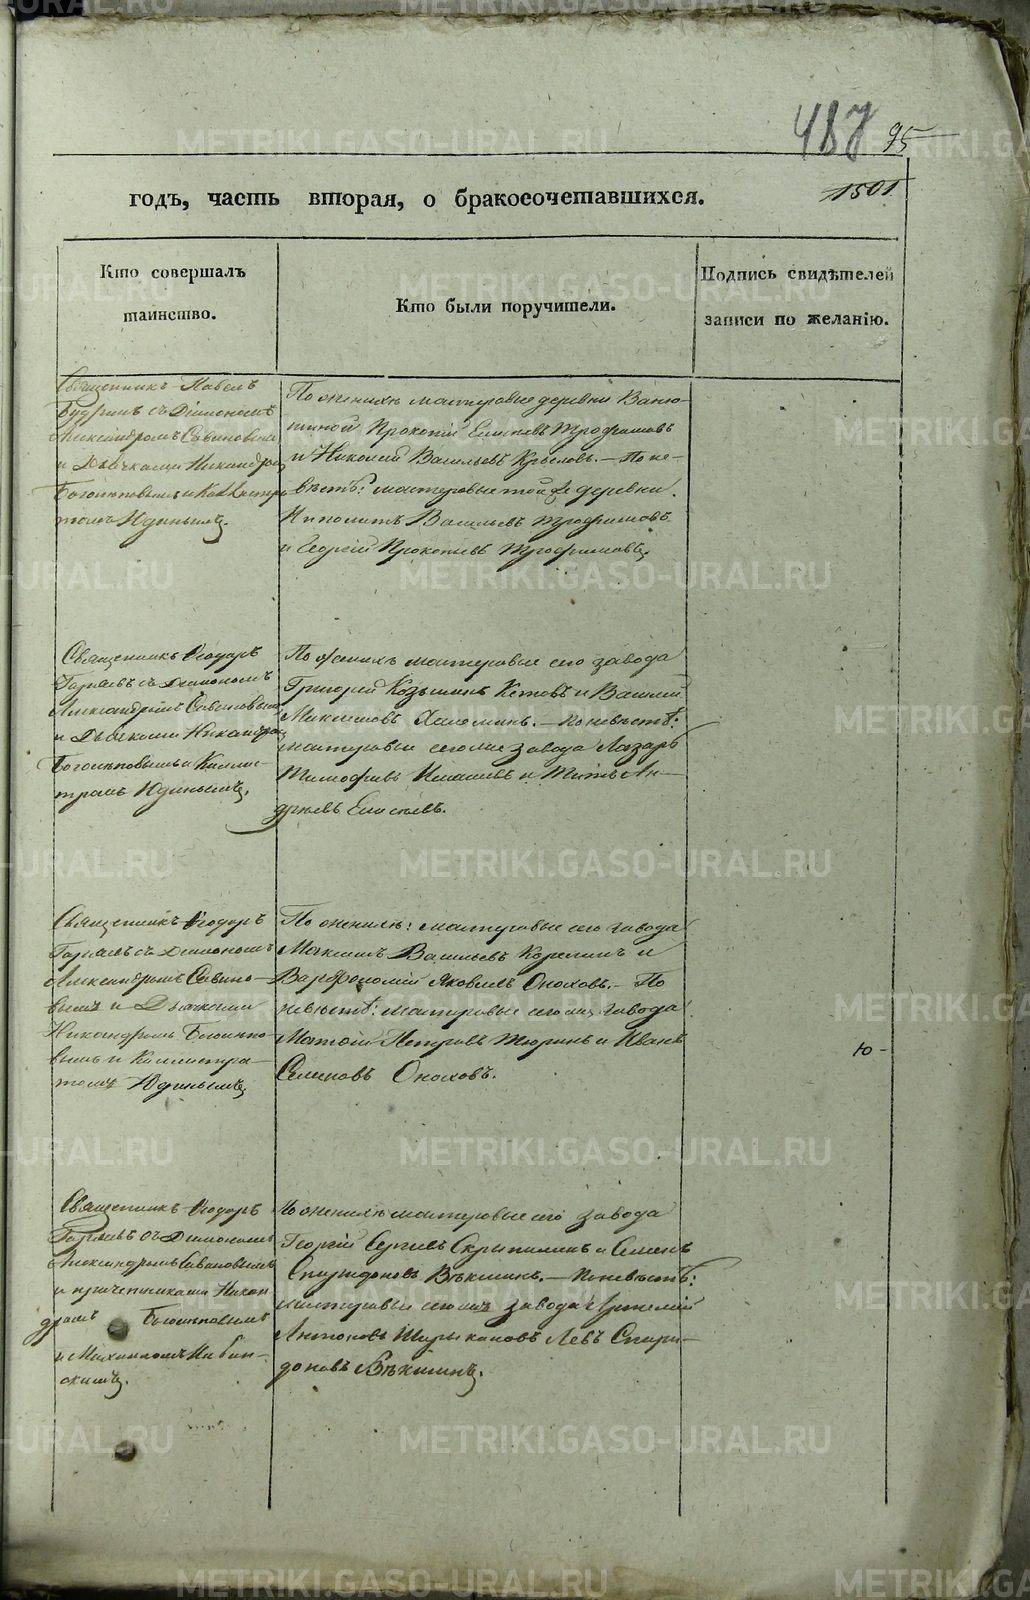 487
95
1501
годъ, часть вторая, о бракосочетавшихся.
Кто совершалъ
таинство.
Кто были поручители.
Подпись свидѣтелей
записи по желанію.
Священникъ Павелъ
Будринъ съ Діакономъ
Александромъ Савиновымъ
и Дьячками Никандромъ
Боголѣповымъ и Каллистра
томъ Юдинымъ.
По женихѣ мастеровые деревни Ваню-
шиной Прокопій Елисѣевъ Трофимовъ
и Николай Васильевъ Крыловъ. – По не-
вѣстѣ: мастеровые той же деревни
Ипполитъ Васильевъ Трофимовъ
и Георгій Прокопьевъ Трофимовъ.
Священникъ Ѳеодоръ
съ Діакономъ
Александромъ Савиновымъ
и Дьячками Никандромъ
Боголѣповымъ и Каллис-
тратомъ Юдинымъ.
По женихѣ мастеровые сего завода
Григорій Козьминъ Кетовъ и Василій
Максимовъ Халеминъ. – По невѣстѣ:
мастеровые сего же завода Лазарь
Тимофѣевъ и Титъ Ан-
дреевъ Елисѣевъ.
Священникъ Ѳеодоръ
съ Діакономъ
Александромъ Савино-
вымъ и Дьячками
Никандромъ Боголѣпо-
вымъ и Каллистра-
томъ Юдинымъ.
По женихѣ: мастеровые сего завода
Максимъ Васильевъ Корелинъ и
Варфоломей Яковлевъ Оноховъ. – По
невѣстѣ: мастеровые сего же завода
Матѳій Петровъ Тюринъ и Иванъ
Семеновъ Оноховъ.
Ю -
Священникъ Ѳеодоръ
съ Діакономъ
Александромъ Савиновымъ
и причетниками Никан
дромъ Боголѣповымъ
и Михаиломъ
По женихѣ мастеровые сего завода
Георгій Сергѣевъ Скрыпалинъ и Семенъ
Спиридоновъ Вѣкшинъ. – По невѣстѣ:
мастеровые сего же завода
Антоновъ Левъ Спири-
доновъ Вѣкшинъ.
METRIKI.GASO-URAL.RU